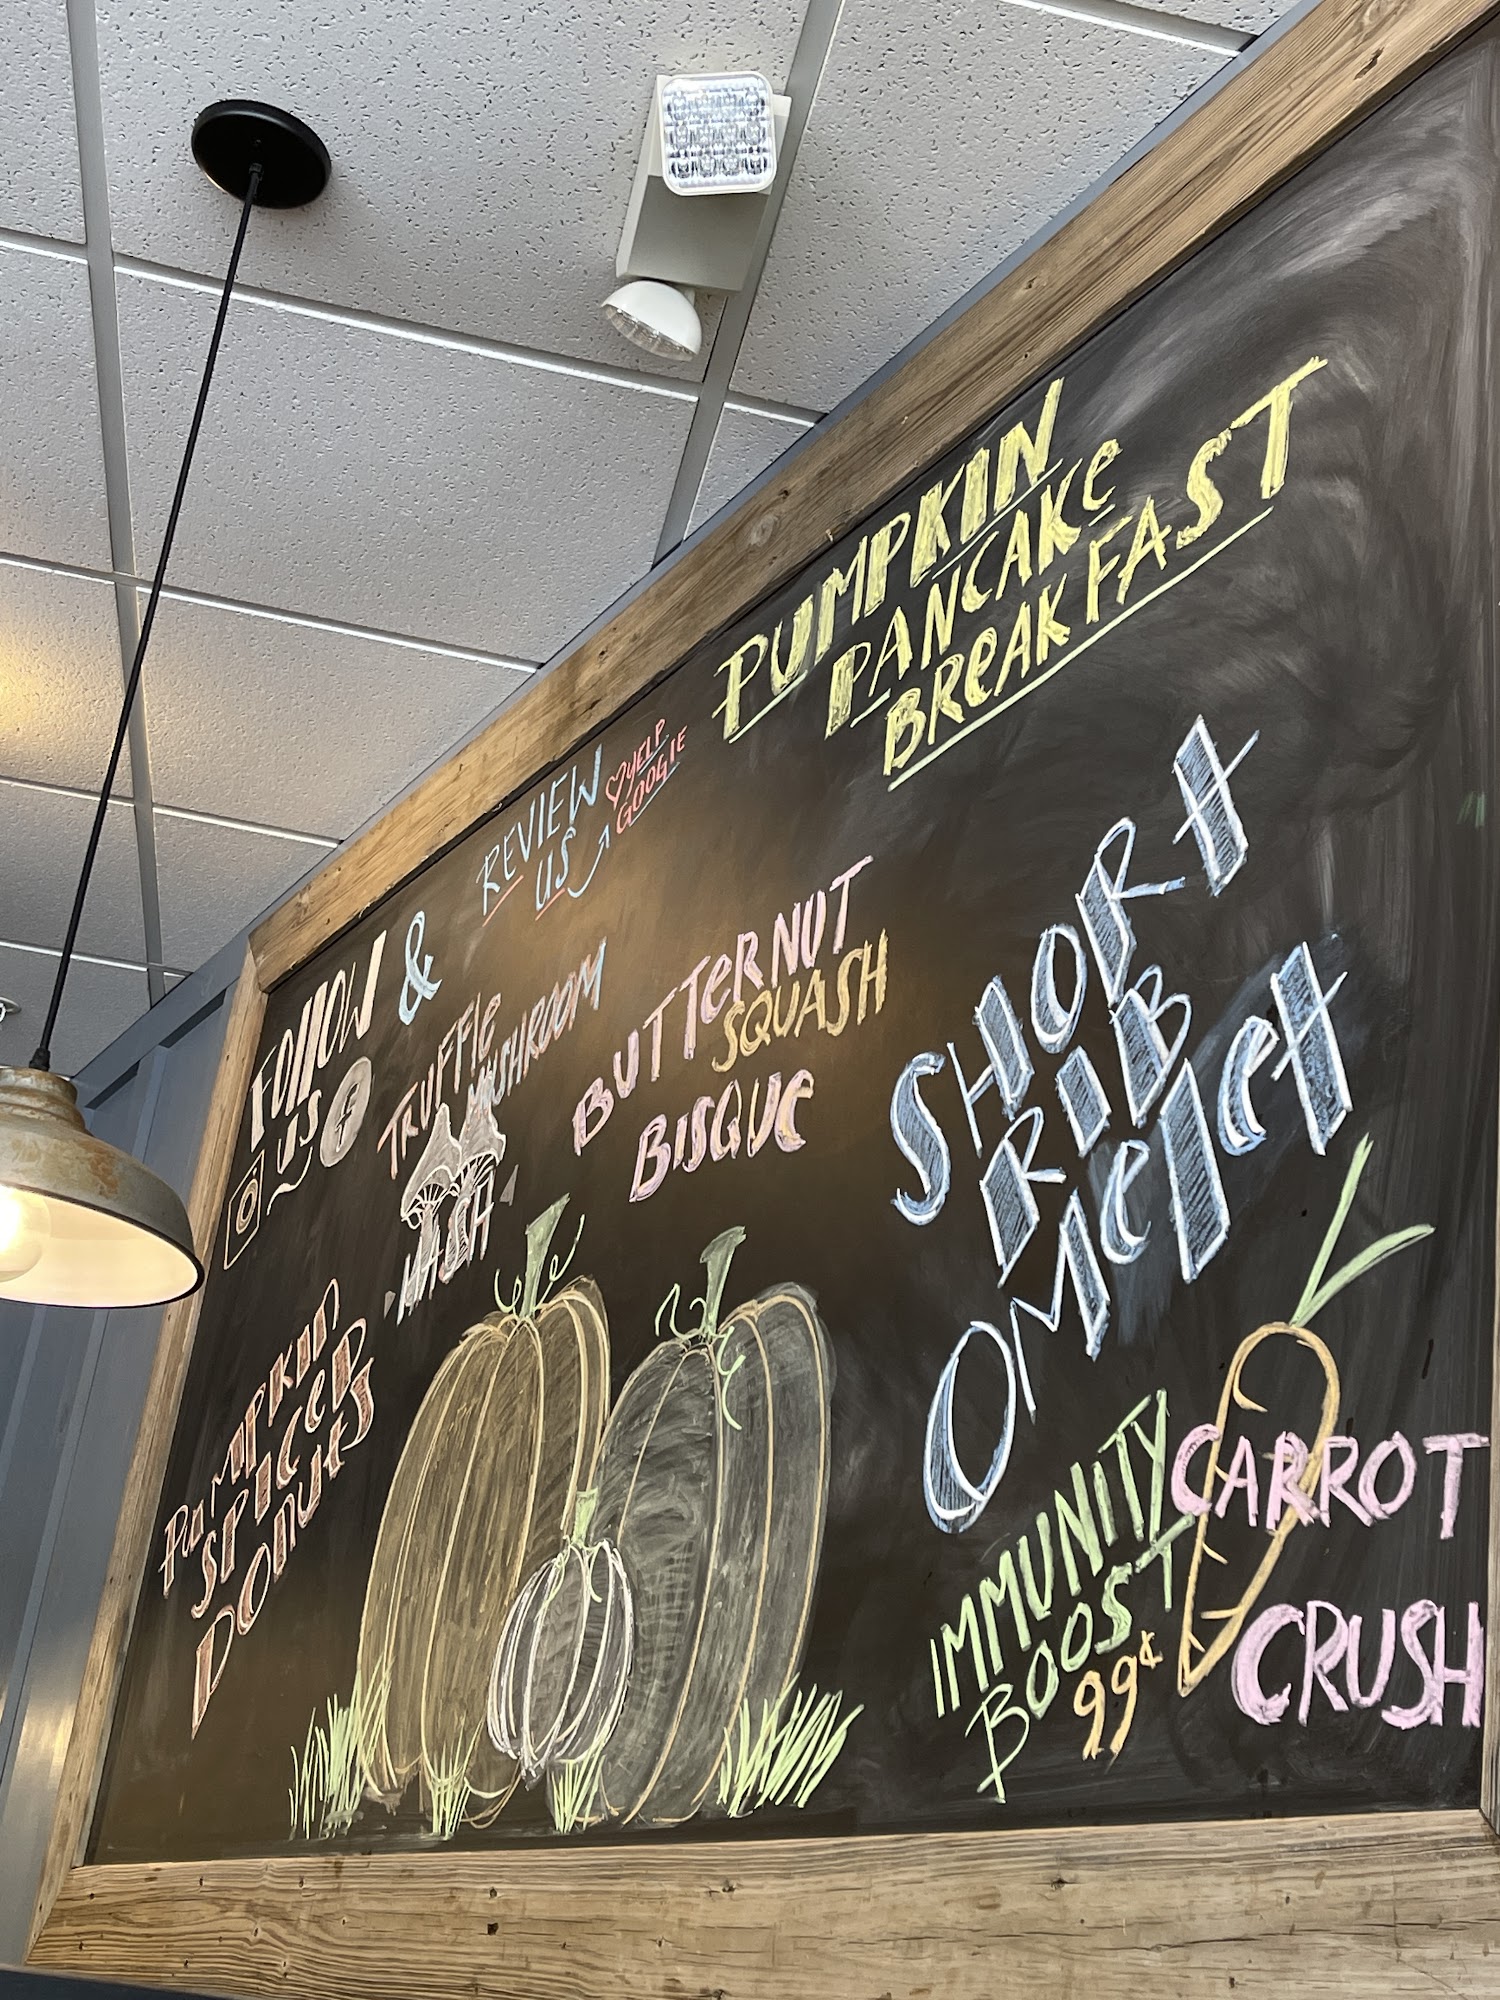 PUMPKIN
PANCAKE
BREAKFAST
FOLLOW
US
&
REVIEW
US
YELP
GOOGLE
TRUFFLE
MUSHROOM
HASH
BUTTERNUT
SQUASH
BISQUE
SHORT
RIB
OMELET
PUMPKIN
SPICED
DONUTS
IMMUNITY
BOOST
99¢
CARROT
CRUSH